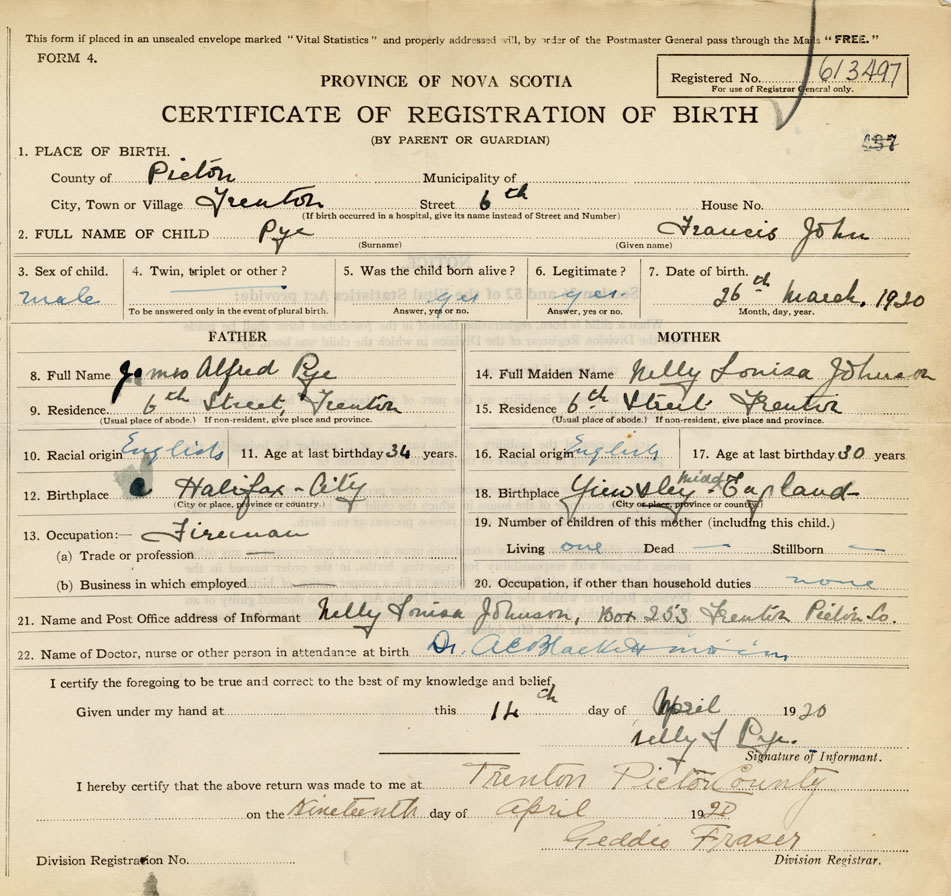 This form if placed in an unsealed envelope marked "Vital Statistics" and properly addressed will, by order of the Postmaster General pass through the Mails "FREE."
FORM 4.
PROVINCE OF NOVA SCOTIA
Registered No. 613497
For use of Registrar General only.
CERTIFICATE OF REGISTRATION OF BIRTH
(BY PARENT OR GUARDIAN)
487
1. PLACE OF BIRTH.
County of Pictou Municipality of
City, Town or Village Trenton Street 6th House No.
(If birth occurred in a hospital, give its name instead of Street and Number)
2. FULL NAME OF CHILD Pye Francis John
(Surname) (Given name)
3. Sex of child. 4. Twin, triplet or other? 5. Was the child born alive? 6. Legitimate? 7. Date of birth.
male yes yes. 26th March, 1920
To be answered only in the event of plural birth. Answer, yes or no. Answer, yes or no. Month, day, year.
FATHER MOTHER
8. Full Name James Alfred Pye 14. Full Maiden Name Nelly Louisa Johnson
9. Residence. 6th Street, Trenton 15. Residence 6th Street Trenton
(Usual place of abode.) If non-resident, give place and province. (Usual place of abode.) If non-resident, give place and province.
10. Racial origin English 11. Age at last birthday 34 years. 16. Racial origin English 17. Age at last birthday 30 years
12. Birthplace Halifax-City 18. Birthplace Yiewsley Midd England
(City or place, province or country) (City or place, province or country)
13. Occupation:— Fireman 19. Number of children of this mother (including this child.)
(a) Trade or profession Living one Dead — Stillborn —
(b) Business in which employed 20. Occupation, if other than household duties none
21. Name and Post Office address of Informant Nelly Louisa Johnson, Box 253 Trenton Pictou Co.
22. Name of Doctor, nurse or other person in attendance at birth Dr.
I certify the foregoing to be true and correct to the best of my knowledge and belief,
Given under my hand at this 14th day of April 1920
Nelly L Pye.
Signature of Informant.
I hereby certify that the above return was made to me at Trenton Pictou County
on the Nineteenth day of April 1920
Geddie Fraser
Division Registration No. Division Registrar.